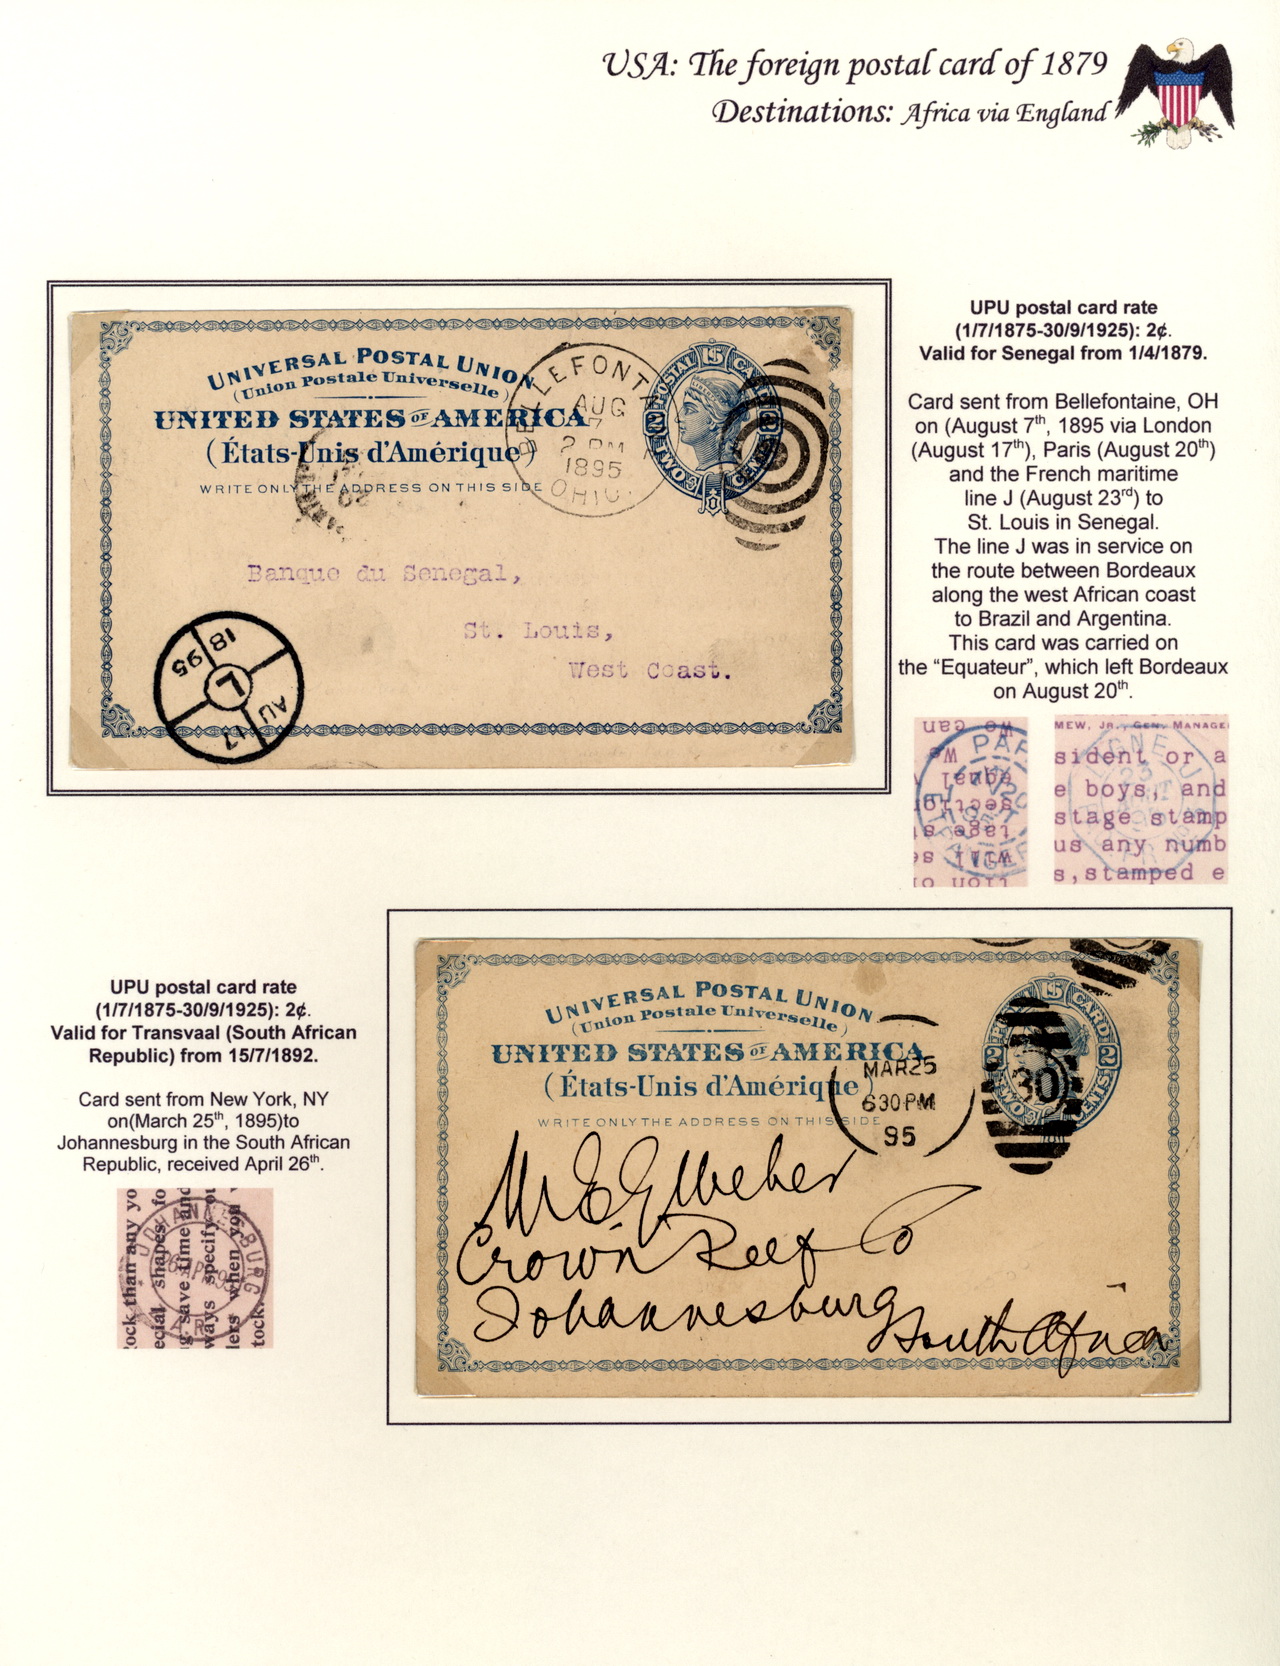 USA: The foreign postal card of 1879
Destinations: Africa via England
UNIVERSAL POSTAL UNION
(Union Postale Universelle)
UNITED STATES OF AMERICA
(États-Unis d'Amérique)
WRITE ONLY THE ADDRESS ON THIS SIDE
POSTAL CARD
2 2
TWO CENTS
BELLEFONTA
AUG
7
2 PM
1895
OHIO.
Banque du Senegal,
St. Louis,
West Coast.
L
AU 17
18 95
UPU postal card rate
(1/7/1875-30/9/1925): 2¢.
Valid for Senegal from 1/4/1879.
Card sent from Bellefontaine, OH
on (August 7th, 1895 via London
(August 17th), Paris (August 20th)
and the French maritime
line J (August 23rd) to
St. Louis in Senegal.
The line J was in service on
the route between Bordeaux
along the west African coast
to Brazil and Argentina.
This card was carried on
the “Equateur”, which left Bordeaux
on August 20th.
we can
We
equal
section
tage st
will se
tion or
PAR
ETRANGER
MEW, JR., GEN. MANAGE
sident or a
e boys, and
stage stamp
us any numb
s,stamped e
LIGNE J
23
UPU postal card rate
(1/7/1875-30/9/1925): 2¢.
Valid for Transvaal (South African
Republic) from 15/7/1892.
Card sent from New York, NY
on(March 25th, 1895)to
Johannesburg in the South African
Republic, received April 26th.
ock than any yo
ecial shapes fo
g save time and
ways specify you
lers when you
tock.
JOHANNESBURG
UNIVERSAL POSTAL UNION
(Union Postale Universelle)
UNITED STATES OF AMERICA
(États-Unis d'Amérique)
WRITE ONLY THE ADDRESS ON THIS SIDE
CARD
2 2
TWO CENTS
MAR 25
630 PM
95
30
Mr E G Weber
Crown Reef Co
Johannesburg
South Africa